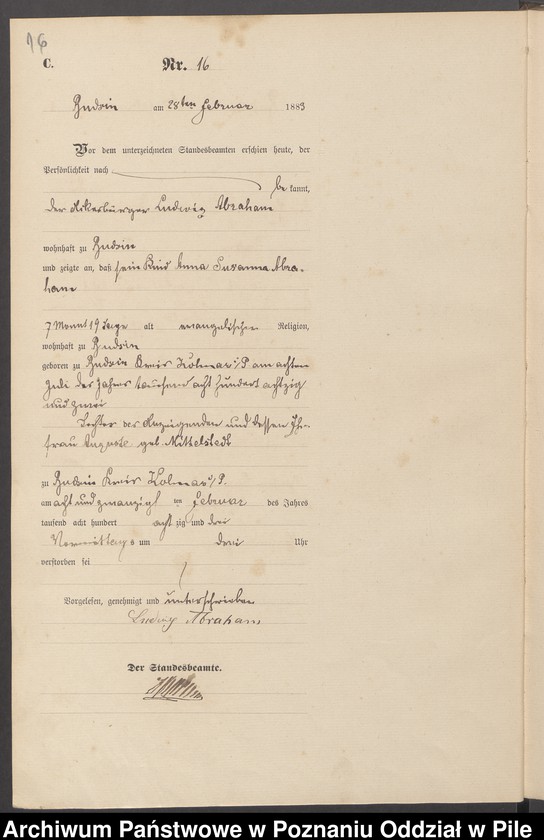 16
C.
Nr. 16
Budsin am 28ten Februar 1883
Vor dem unterzeichneten Standesbeamten erschien heute, der
Persönlichkeit nach
be kannt,
der Ackerbürger Ludwig Abraham
wohnhaft zu Budsin
und zeigte an, daß sein Kind Anna Susanna Abra-
ham
7 Monat 19 Tage alt evangelischer Religion,
wohnhaft zu Budsin
geboren zu Budsin Kreis Kolmar i/P am achten
Juli des Jahres tausend acht hundert achtzig
und zwei
Tochter des Anzeigenden und dessen Ehe-
frau Auguste geb. Mittelstedt
zu Budsin Kreis Kolmar i/P.
am acht und zwanzigsten Februar des Jahres
tausend acht hundert acht zig und drei
Vormittags um drei Uhr
verstorben sei
Vorgelesen, genehmigt und unterschrieben
Ludwig Abraham
Der Standesbeamte.
Archiwum Państwowe w Poznaniu Oddział w Pile